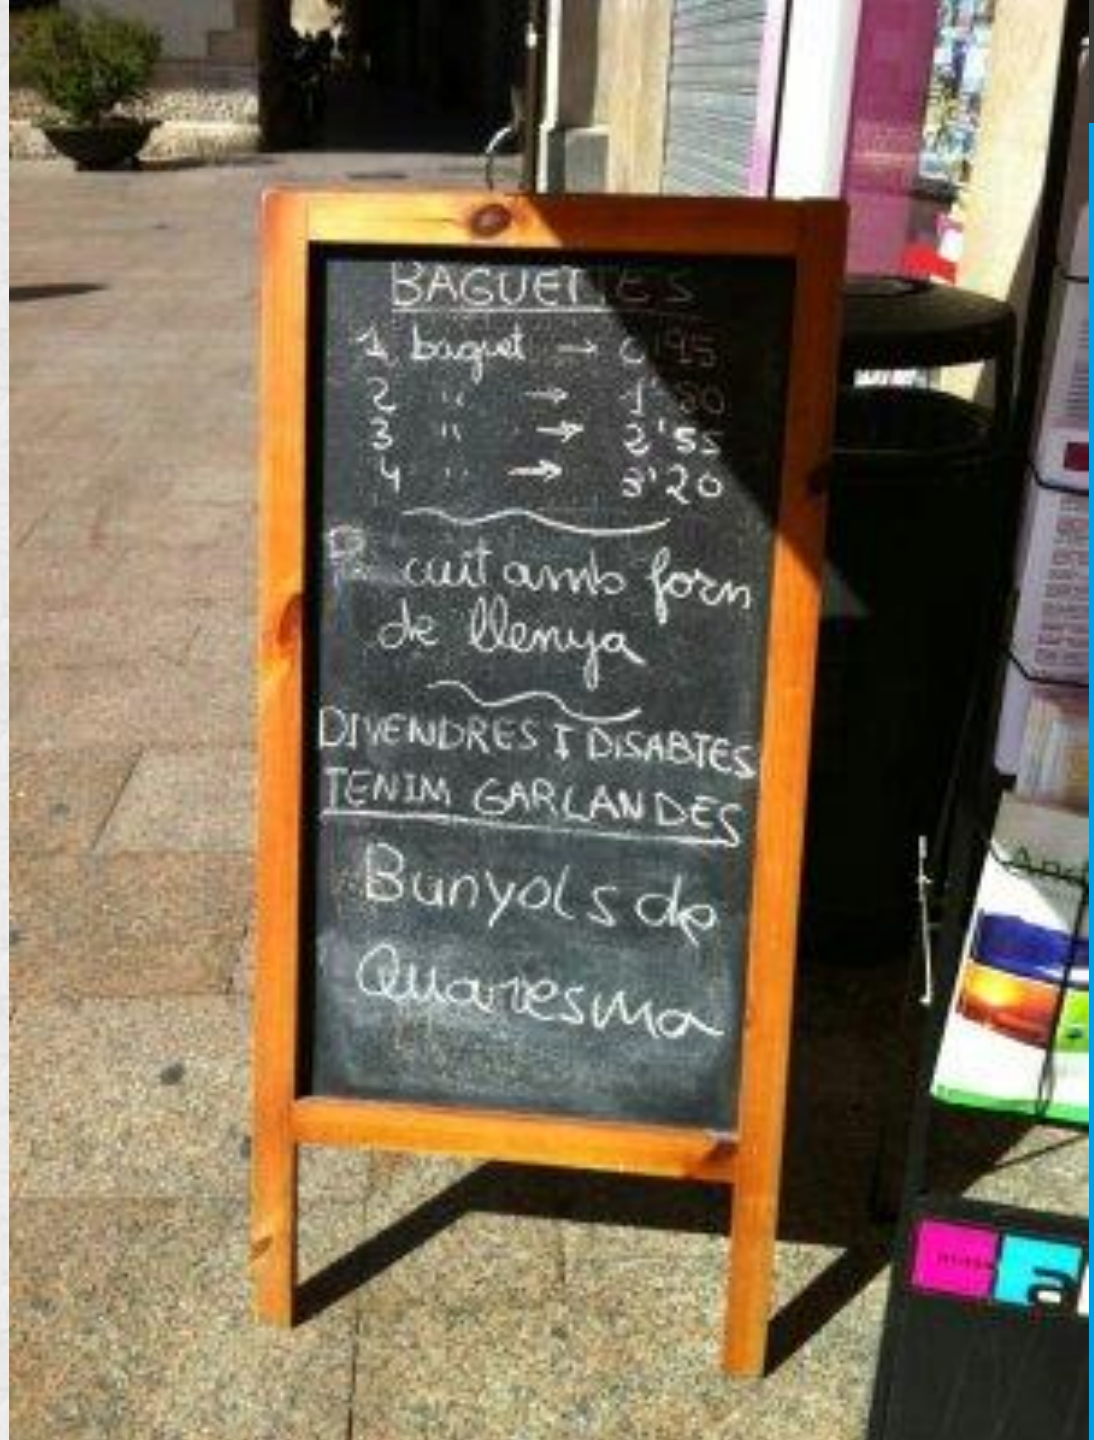 BAGUETTES
1 baguet → 0'95
2 " → 1'80
3 " → 2'55
4 " → 3'20
Pa cuit amb forn
de llenya
DIVENDRES I DISABTES
TENIM GARLANDES
Bunyols de
Quaresma